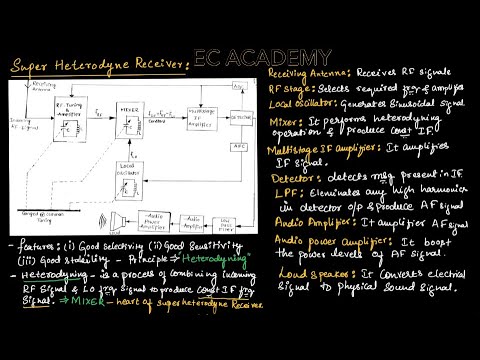 Super Heterodyne Receiver:
EC ACADEMY
Receiving Antenna
Incoming RF-Signal
RF-Tuning & Amplifier
MIXER
Constant
Multistage IF Amplifier
DETECTOR
AGC
Local Oscillator
Ganged or common Tuning
Loud
Audio Power Amplifier
Audio Amplifier
Low Pass Filter
- features: (i) Good Selectivity (ii) Good Sensitivity
(iii) Good stability - Principle ⇒ "Heterodyning"
- Heterodyning - is a process of combining incoming
RF Signal & LO frq signal to produce const IF frq
Signal. ⇒ MIXER - heart of superheterodyne Receiver
Receiving Antenna: Receives RF signals
RF Stage: Selects required frq & amplifies
Local oscillator: Generates Sinusoidal signal
Mixer: It performs heterodyning
operation & produce const IF.
Multistage IF amplifier: It amplifies
IF Signal.
Detector: detects msg present in IF
LPF: Eleminates any high harmonics
in detector o/p & produce AF signal
Audio Amplifier: It amplifier AF signal
Audio power Amplifier: It boost
the power levels of AF signal.
Loud speaker: It converts electrical
signal to physical sound signal.